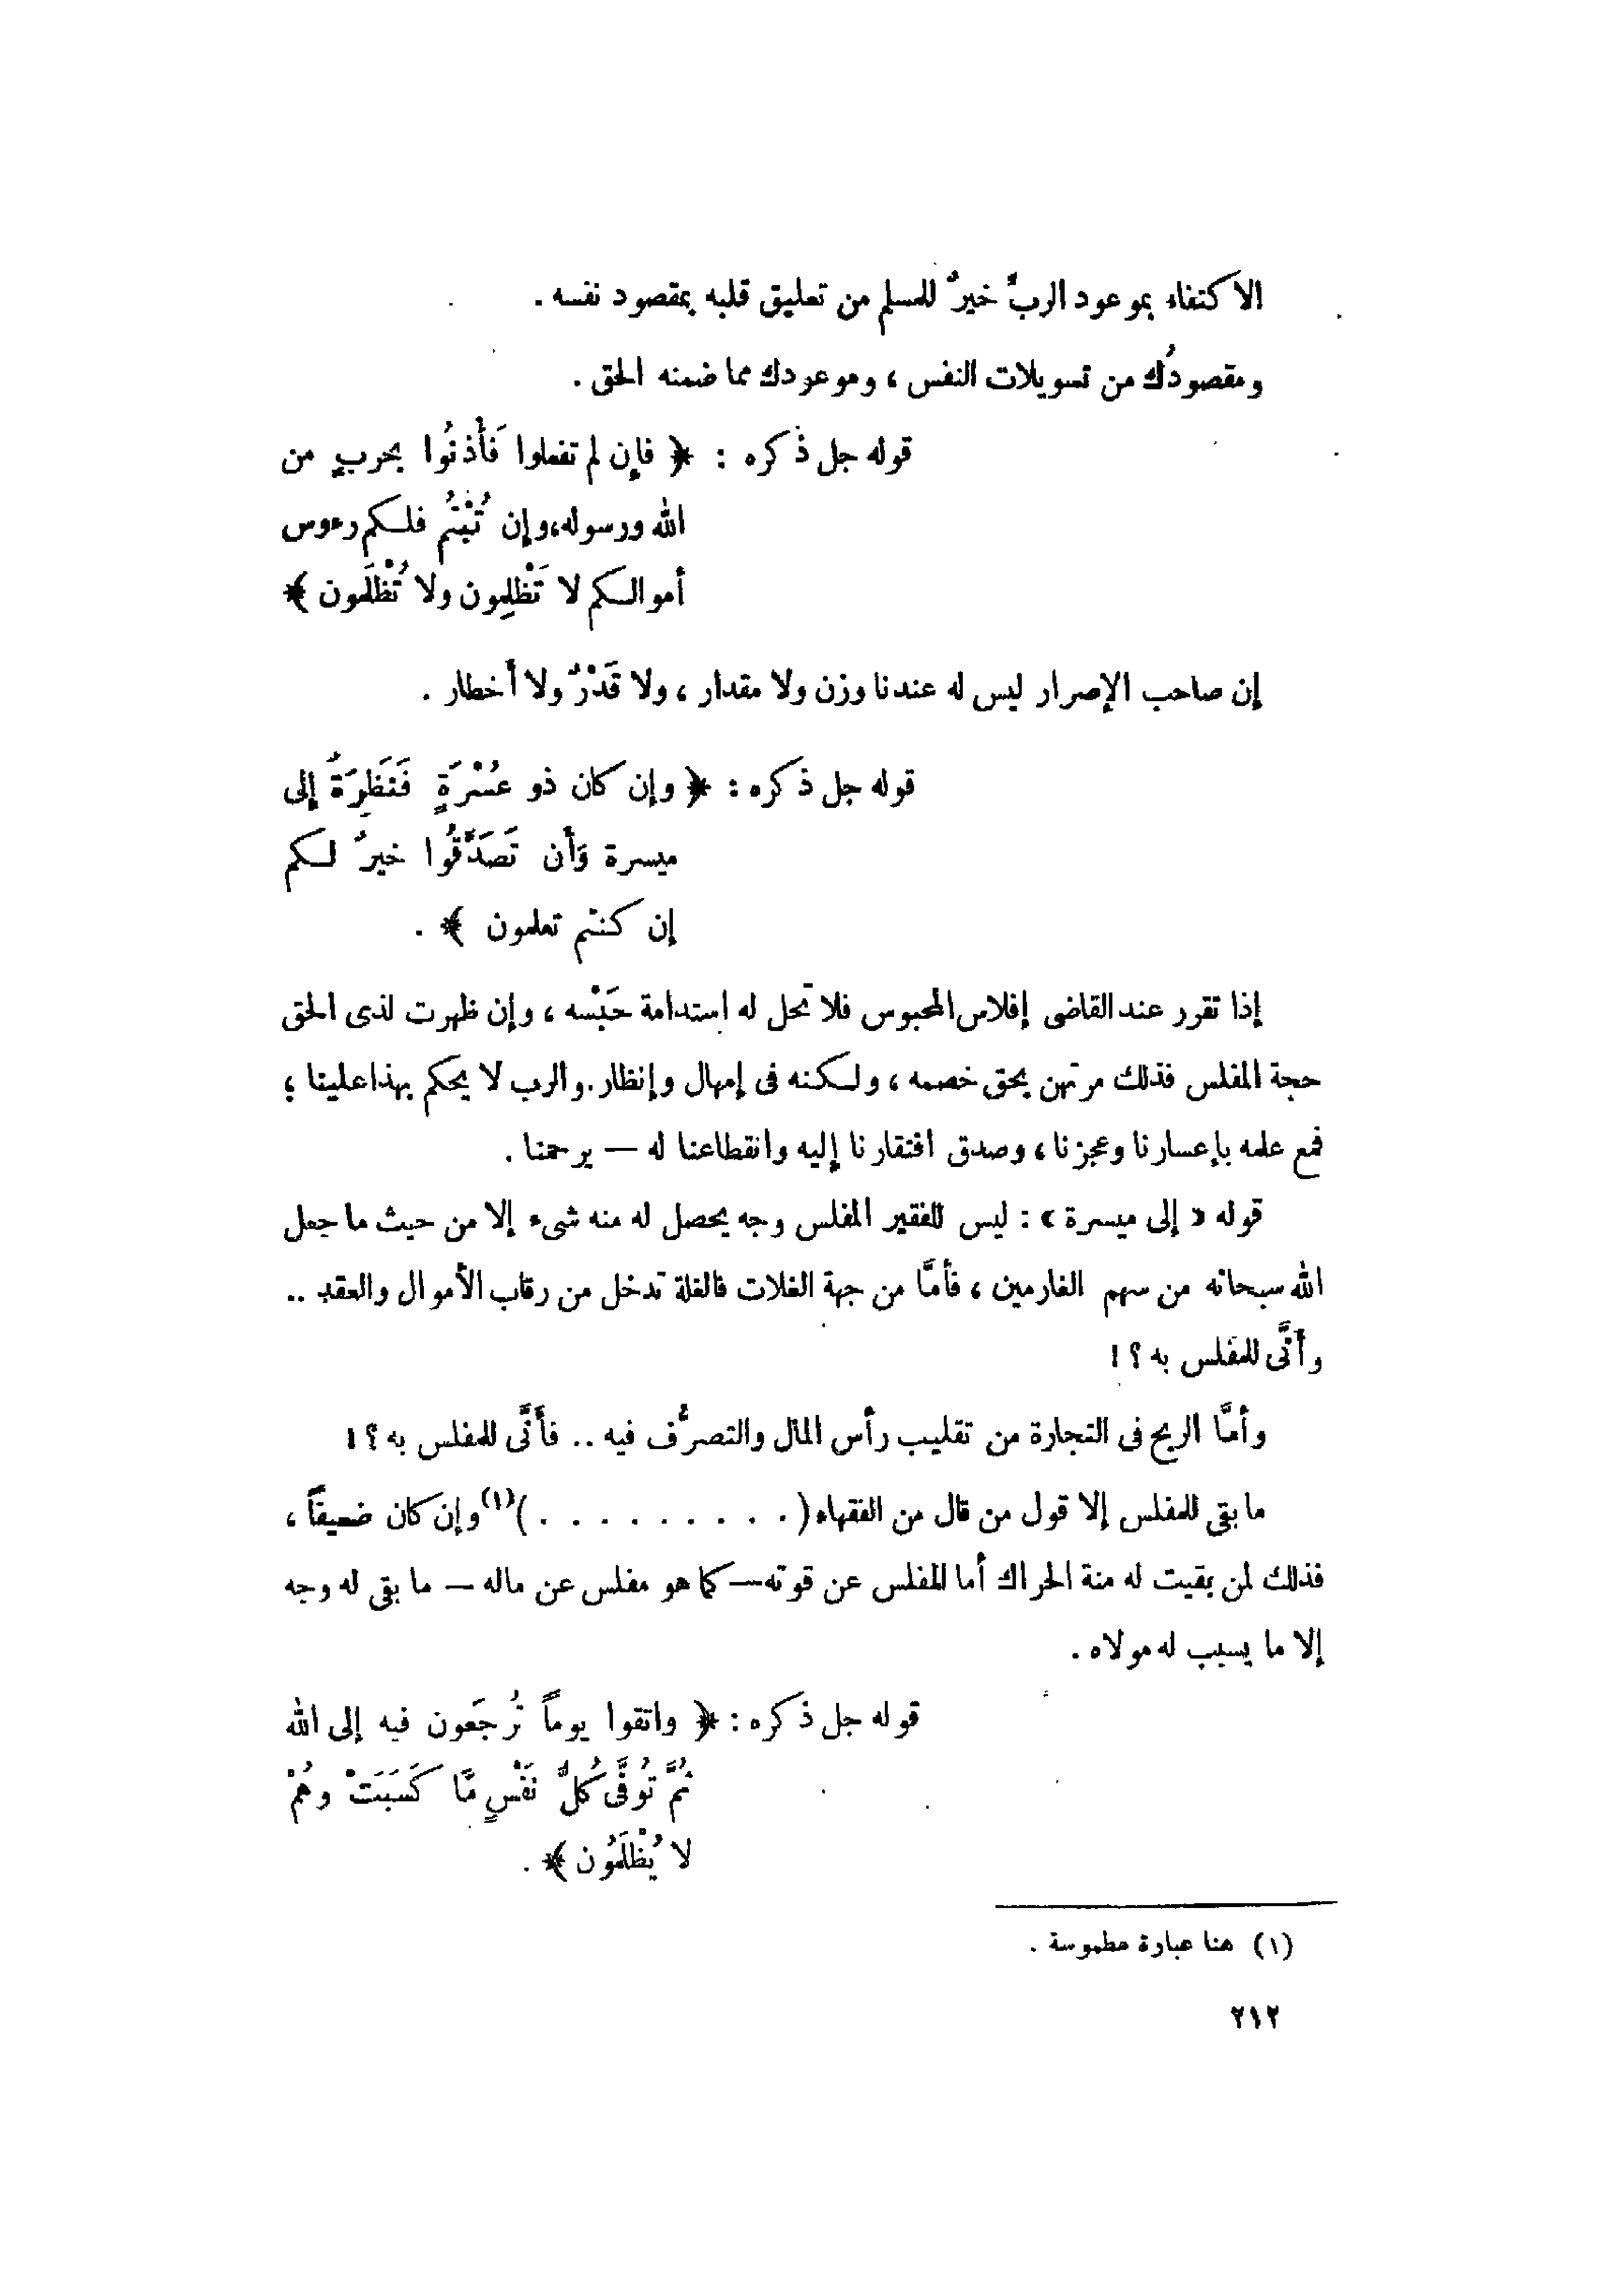 الاكتفاء بموعود الربِّ خيرٌ للمسلم من تعليق قلبه بمقصود نفسه .
ومقصودُك من تسويلات النفس ، وموعودك مما ضمنه الحق .
قوله جل ذكره : ﴿ فإن لم تفعلوا فَأْذنُوا بحربٍ من
الله ورسوله،وإن تُبْتُم فلكم رءوس
أموالكم لا تَظْلِمون ولا تُظْلَمون ﴾
إن صاحب الإصرار ليس له عندنا وزن ولا مقدار ، ولا قَدْرٌ ولا أخطار .
قوله جل ذكره : ﴿ وإن كان ذو عُسْرَةٍ فَنَظِرَةٌ إلى
ميسرة وَأن تَصَدَّقُوا خيرٌ لكم
إن كنتم تعلمون ﴾ .
إذا تقرر عند القاضى إفلاس المحبوس فلا تحل له استدامة حَبْسه ، وإن ظهرت لذى الحق
حجة المفلس فذلك مرتهن بحق خصمه ، ولكنه فى إمهال وإنظار . والرب لا يحكم بهذا علينا ؛
فمع علمه بإعسارنا وعجزنا ، وصدق افتقارنا إليه وانقطاعنا له — يرحمنا .
قوله « إلى ميسرة » : ليس للفقير المفلس وجه يحصل له منه شىء إلا من حيث ما جعل
الله سبحانه من سهم الغارمين ، فأمَّا من جهة الغلات فالغلة تدخل من رقاب الأموال والعقد ..
وأنَّى للمفلس به ؟ !
وأمَّا الربح فى التجارة من تقليب رأس المال والتصرُّف فيه .. فأنَّى للمفلس به ؟ !
ما بقى للمفلس إلا قول من قال من الفقهاء ( . . . . . . . . . )(١) وإن كان ضعيفاً ،
فذلك لمن بقيت له منة الحراك أما المفلس عن قوته — كما هو مفلس عن ماله — ما بقى له وجه
إلا ما يسبب له مولاه .
قوله جل ذكره : ﴿ واتقوا يوماً تُرجَعون فيه إلى الله
ثُمَّ تُوفَّى كُلُّ نَفْسٍ مَّا كَسَبَتْ وهُمْ
لا يُظْلَمُون ﴾ .
(١) هنا عبارة مطموسة .
٢١٢